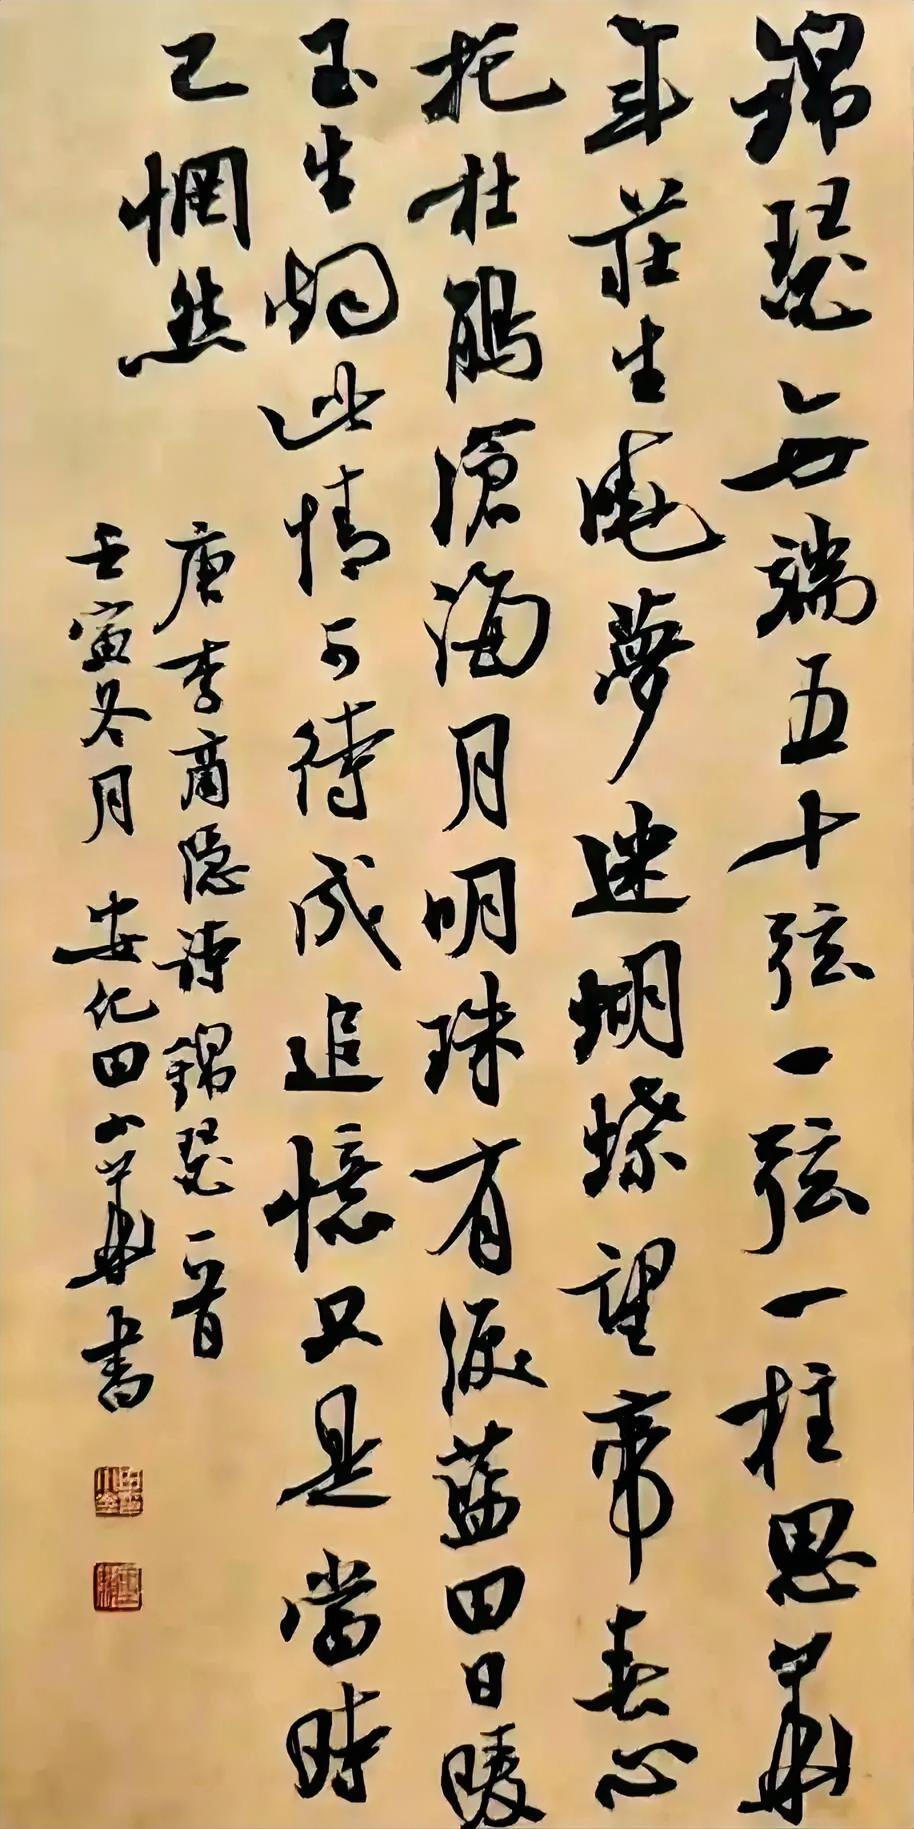 錦瑟無端五十弦一弦一柱思華
年莊生曉夢迷蝴蝶望帝春心
托杜鵑滄海月明珠有淚藍田日暖
玉生烟此情可待成追憶只是當時
已惘然
唐李商隐詩錦瑟一首
壬寅冬月 安化田小華書